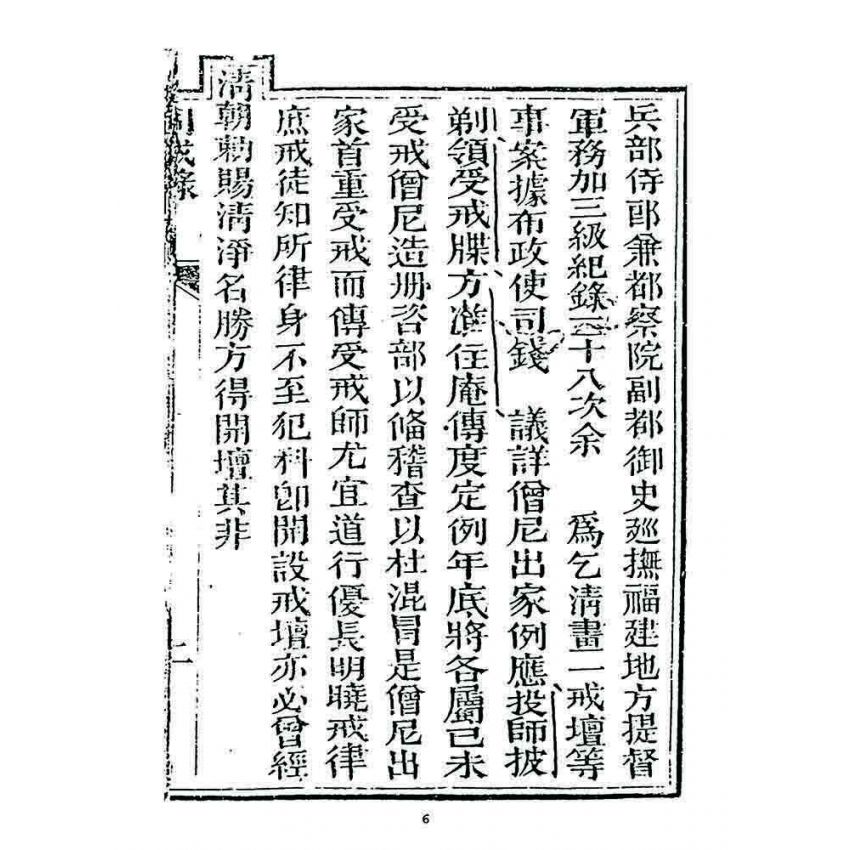 兵部侍郎兼都察院副都御史廵撫福建地方提督
軍務加三級紀錄三十八次余　爲乞淸畫一戒壇等
事案據布政使司錢　議詳僧尼出家例應投師披
剃領受戒牒方准住庵傳度定例年底將各屬已未
受戒僧尼造册咨部以俻稽查以杜混冒是僧尼出
家首重受戒而傳受戒師尤宜道行優長明曉戒律
庶戒徒知所律身不至犯科卽開設戒壇亦必曾經
淸朝勅賜淸淨名勝方得開壇其非
戒錄
二
6